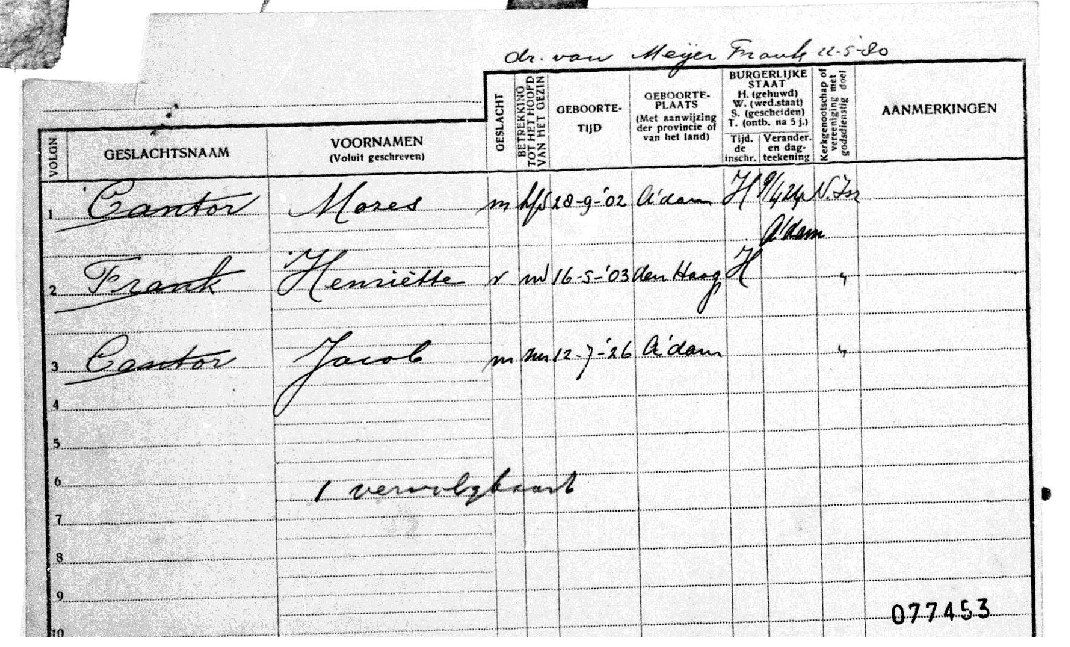 dr. van Meijer Frank 22-5-80
VOLGN
GESLACHTSNAAM
VOORNAMEN
(Voluit geschreven)
GESLACHT
BETREKKING TOT HET HOOFD VAN HET GEZIN
GEBOORTE-
TIJD
GEBOORTE-
PLAATS
(Met aanwijzing
der provincie of
van het land)
BURGERLIJKE
STAAT
H. (gehuwd)
W. (wed.staat)
S. (gescheiden)
T. (ontb. na 5 j.)
Tijd.
de
inschr.
Verander.
en dag-
teekening
Kerkgenootschap of
vereeniging met
godsdienstig doel
AANMERKINGEN
1 Cantor Mozes m hfd 28-9-'02 A'dam H 9/4 24 N. Isr
A'dam
2 Frank Henriëtte v 16-5-'03 den Haag H "
3 Cantor Jacob m 12-7-'26 A'dam "
4
5
6 1 vervolgkaart
7
8
9
077453
10